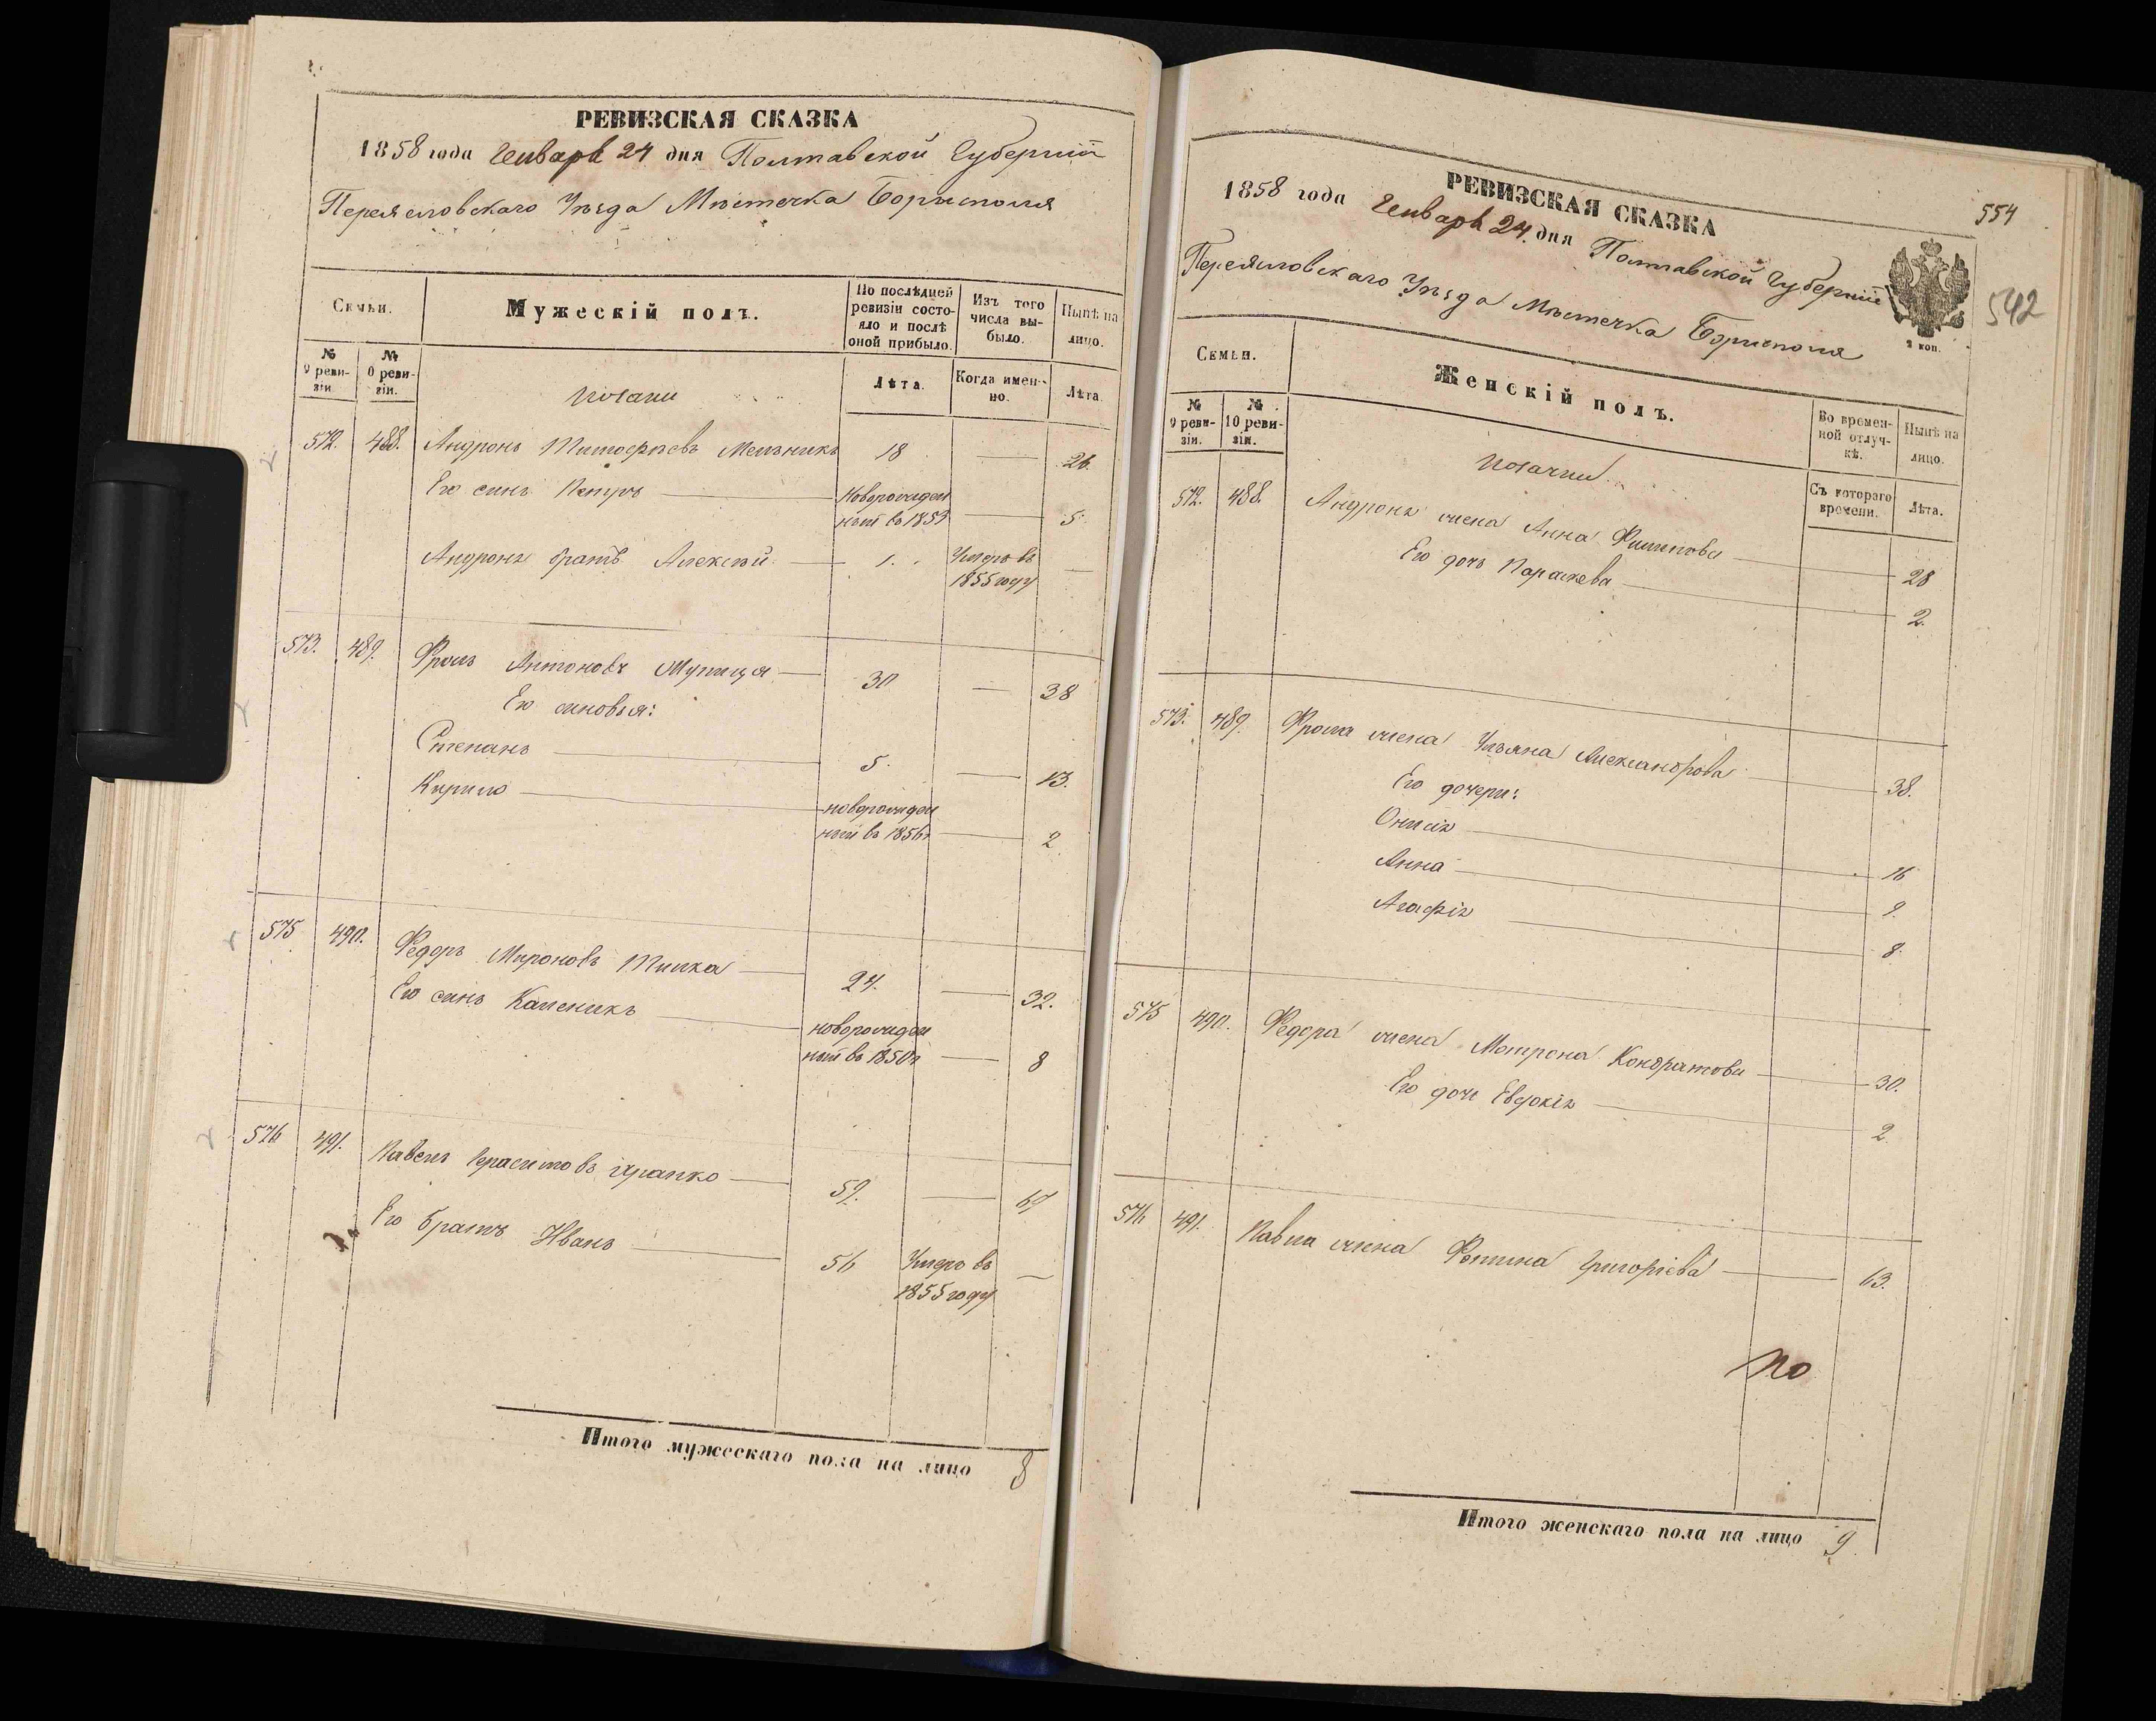 РЕВИЗСКАЯ СКАЗКА
1858 года Генваря 24 дня Полтавской Губернiи
Переясловскаго Уѣзда Мѣстечка Борисполя
Семьи.
Мужескiй полъ.
По послѣдней ревизiи состояло и послѣ оной прибыло.
Изъ того числа выбыло.
Нынѣ на лицо.
№ 9 ревизiи.
№ 0 ревизiи.
Козаки
Лѣта.
Когда именно.
Лѣта.
572. 488. Андронъ Тимофѣевъ Мельникъ 18 — 26.
Его синъ Петръ — Новорожден
ный въ 1853 — 5.
Андрона братъ Алексѣй — 1. Умеръ въ —
1855 году
573. 489. Фролъ Антоновъ — 30 — 38
Его синовья:
Степанъ — 5. — 13.
Кирило — новорожден
ный въ 1856г — 2
575 490. Федоръ Мироновъ — 24. — 32.
Его синъ Каленикъ — новорожден
ный въ 1850г — 8
576 491. Павелъ Герасимовъ — 59. — 67
Его братъ Иванъ — 56 Умеръ въ —
1855 году
Итого мужескаго пола на лицо 8
554
542
РЕВИЗСКАЯ СКАЗКА
1858 года Генваря 24. дня Полтавской Губернiи
Переясловскаго Уѣзда Мѣстечка Борисполя
2 коп.
Семьи.
Женскiй полъ.
Во временной отлучкѣ.
Нынѣ на лицо.
№ 9 ревизiи.
№ 10 ревизiи.
Козачки
Съ котораго времени.
Лѣта.
572. 488. Андрона жена Анна Филипова — 28
Его дочь Параскева — 2.
573. 489. Фрола жена Ульяна Александрова — 38.
Его дочери:
Онисiя — 16
Анна — 9.
Агафiя — 8.
575 490. Федора жена Мотрона Кондратова — 30.
Его дочь Евдокiя — 2
576 491. Павла жена Григорiева — 63.
По
Итого женскаго пола на лицо 9.